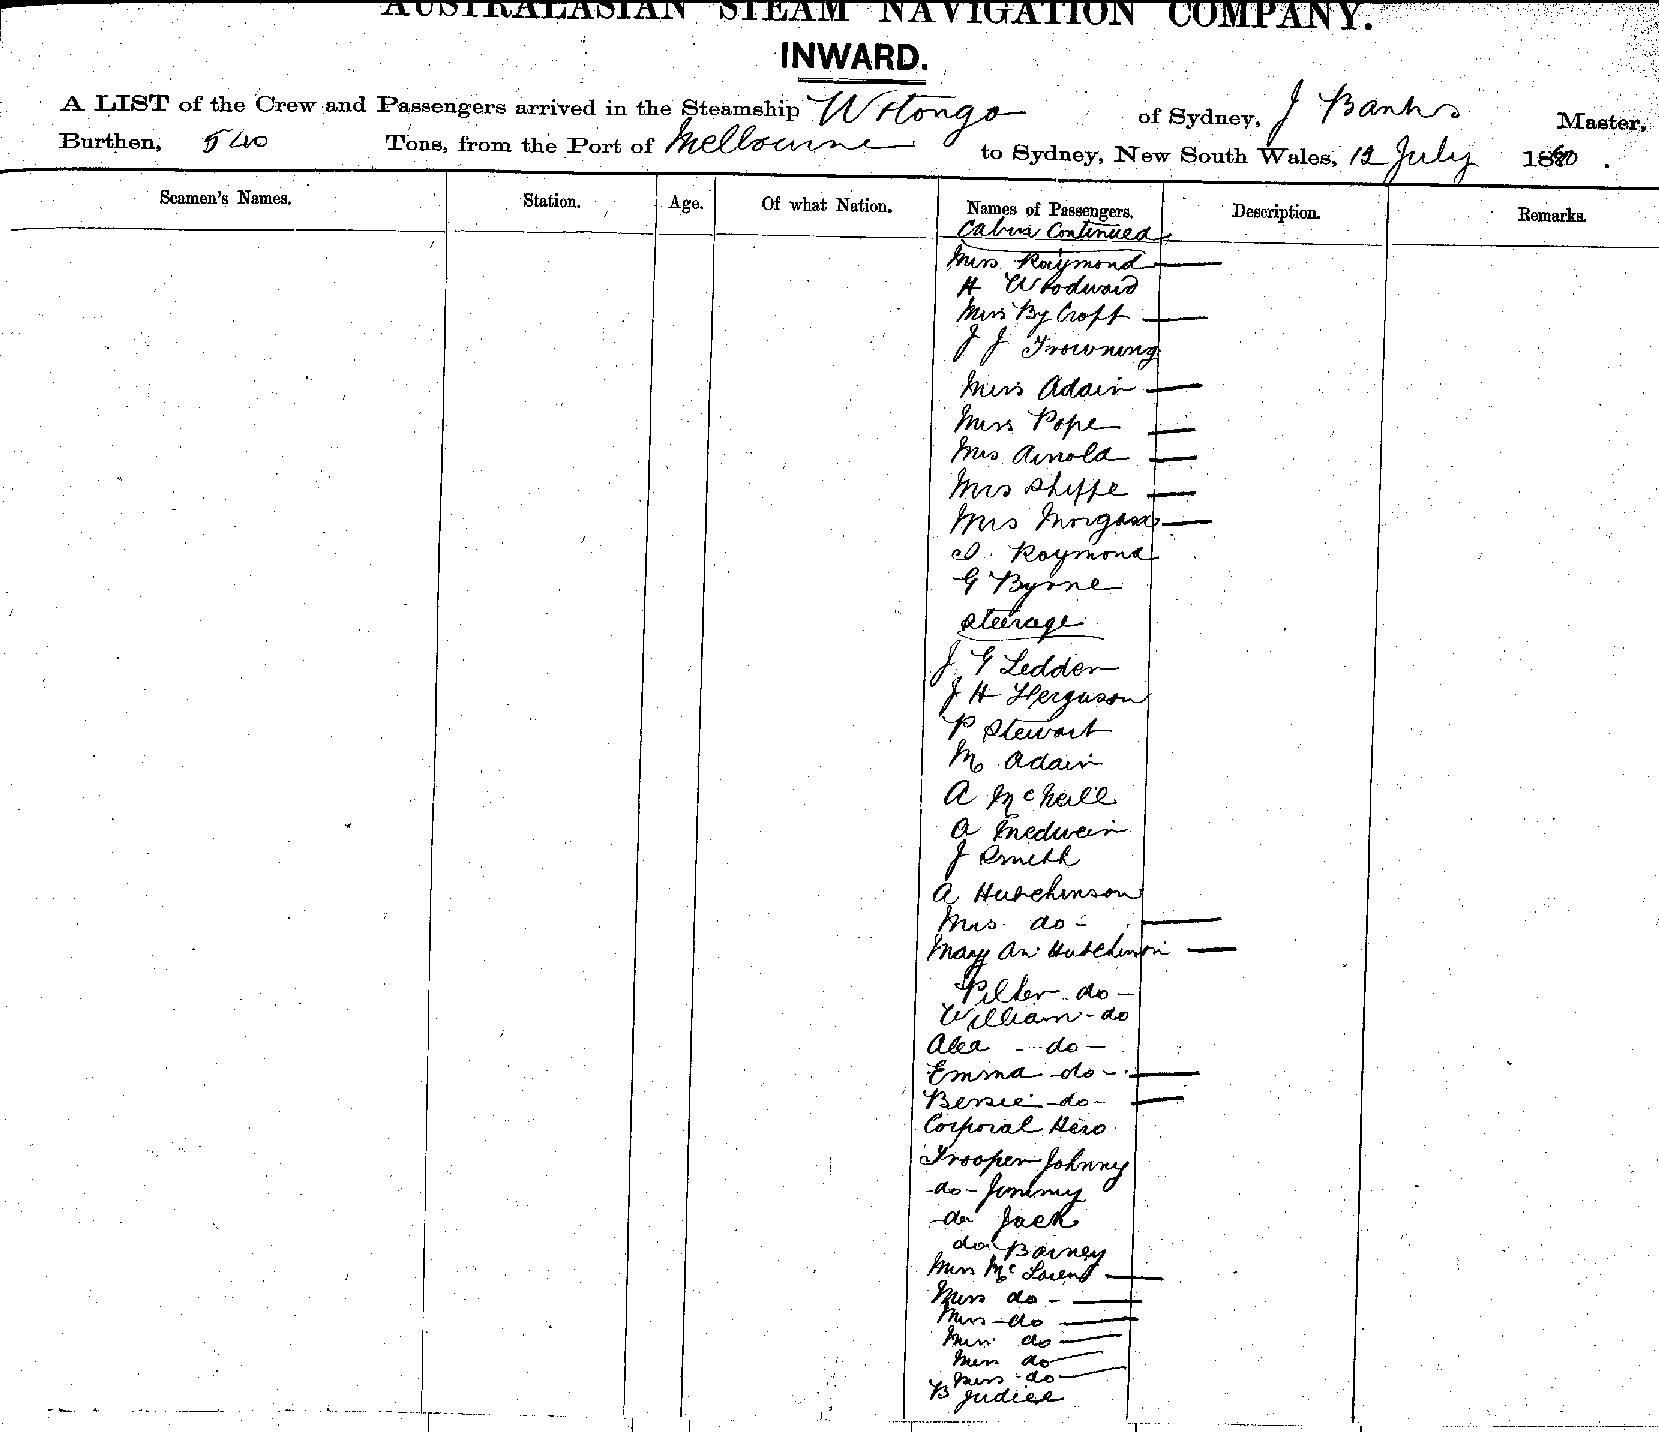 AUSTRALASIAN STEAM NAVIGATION COMPANY.
INWARD.
A LIST of the Crew and Passengers arrived in the Steamship Wotonga of Sydney, J Banks Master,
Burthen, 540 Tons, from the Port of Melbourne to Sydney, New South Wales, 12 July 1880.
Seamen's Names. Station. Age. Of what Nation. Names of Passengers. Description. Remarks.
Cabin Continued
Miss Raymond
H Woodward
Miss By Croft
J J Trowning
Miss Adair
Miss Pope
Mrs Arnold
Mrs Shippe
Mrs Morgan
Raymond
G Byrne
Steerage
J G Ledden
J H Ferguson
P Stewart
M Adair
A McNeill
A Medwein
J Smith
A Hutchinson
Mrs do -
Mary An Hutchinson
do -
William - do
Alea - do -
Emma do -
Bessie - do -
Corporal Hero
Trooper Johnny
- do - Jimmy
- do Jack
do Barney
Miss Mc
Miss do -
Miss - do
Miss do
Miss do
Miss - do
B Judiel